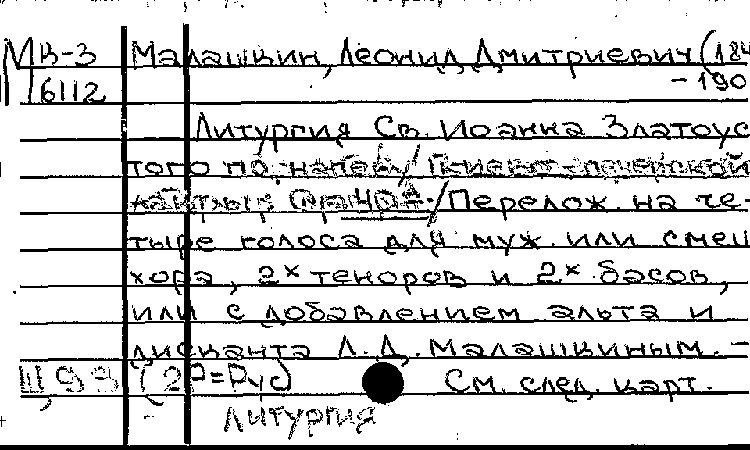 М В-3 Малашкин, Леонид Дмитриевич (184
6112 -190
Литургия Св. Иоанна Златоус
того по напеву Киево-печерской
Перелож. на че-
тыре голоса для муж. или смеш
хора, 2х теноров и 2х басов,
или с добавлением альта и
дисканта Л. Д. Малашкиным. -
Ш 93 (2Р=Рус) См. след. карт.
Литургия